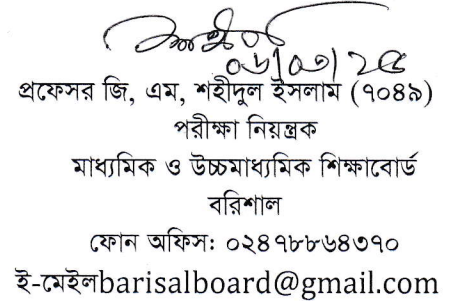 ০৬/০৩/২৫
প্রফেসর জি, এম, শহীদুল ইসলাম (৭০৪৯)
পরীক্ষা নিয়ন্ত্রক
মাধ্যমিক ও উচ্চমাধ্যমিক শিক্ষাবোর্ড
বরিশাল
ফোন অফিস: ০২৪৭৮৮৬৪৩৭০
ই-মেইলbarisalboard@gmail.com